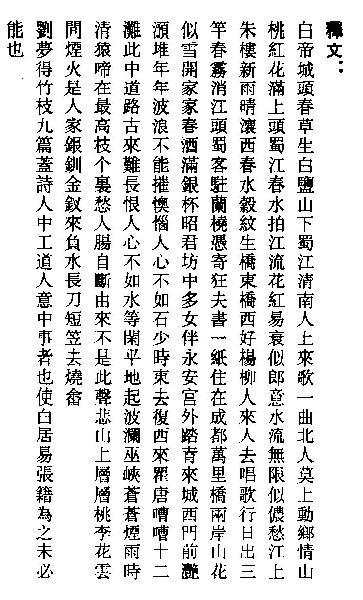 釋文：
白帝城頭春草生白鹽山下蜀江清南人上來歌一曲北人莫上動鄉情山
桃紅花滿上頭蜀江春水拍江流花紅易衰似郎意水流無限似儂愁江上
朱樓新雨晴瀼西春水縠紋生橋東橋西好楊柳人來人去唱歌行日出三
竿春霧消江頭蜀客駐蘭橈憑寄狂夫書一紙住在成都萬里橋兩岸山花
似雪開家家春酒滿銀杯昭君坊中多女伴永安宮外踏青來城西門前灩
澦堆年年波浪不能摧懊惱人心不如石少時東去復西來瞿唐嘈嘈十二
灘此中道路古來難長恨人心不如水等閑平地起波瀾巫峽蒼蒼煙雨時
清猿啼在最高枝个裏愁人腸自斷由來不是此聲悲山上層層桃李花雲
間煙火是人家銀釧金釵來負水長刀短笠去燒畬
劉夢得竹枝九篇蓋詩人中工道人意中事者也使白居易張籍為之未必
能也